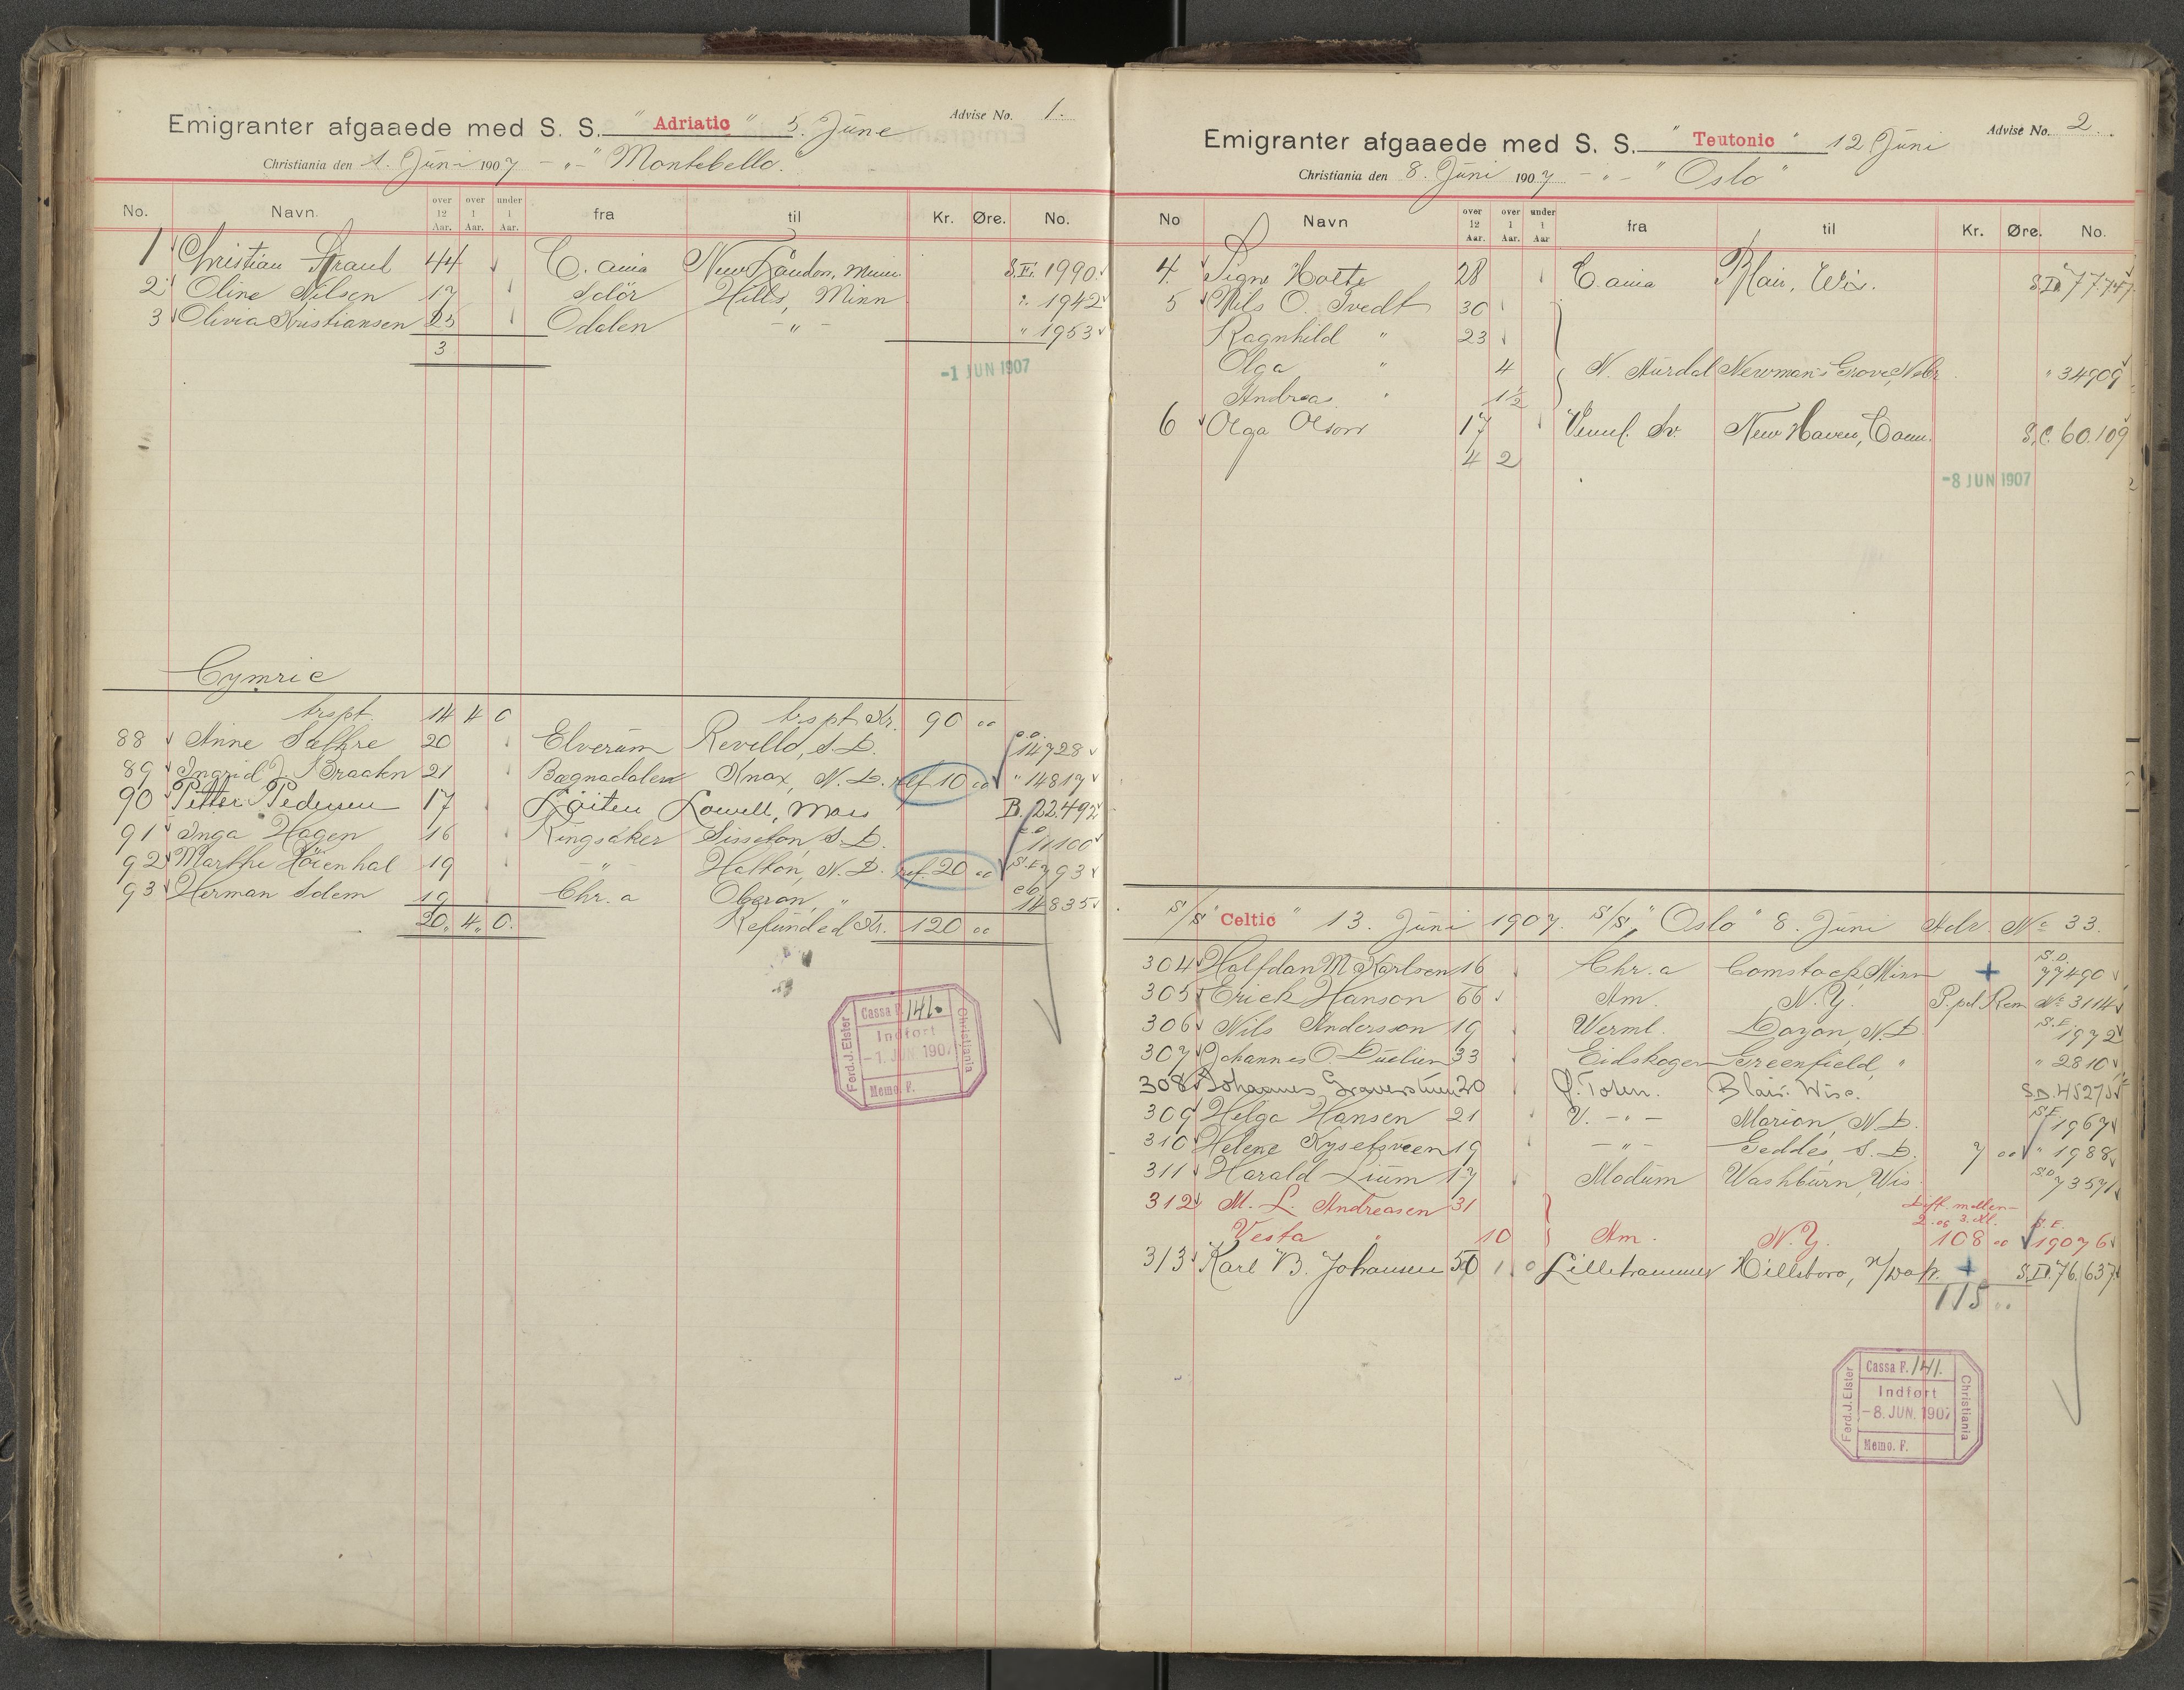 Advise No. 1.
Emigranter afgaaede med S. S. "Adriatic" 5. June
Christiania den 1. Juni 1907 - " - "Montebello."
No. Navn. over 12 Aar. over 1 Aar. under 1 Aar. fra til Kr. Øre. No.
1 Christian Straul 44 C.ania New London, Minn S.E. 1990
2 Oline Nilsen 17 Solör Hills, Minn " 1942
3 Olivia Kristiansen 25 Odalen - " - " 1953
3
-1 JUN 1907
Cymric
trspt. 14 4 0 trspt Kr. 90 00
88 Anne Sæthre 20 Elverum Revillo, S.D. C.O. 14728
89 Ingrid J. Braaten 21 Bægnadalen Knox, N.D. ref 10 00 " 14817
90 Petter Pedersen 17 Löiten Lowell, Mass B. 22.492
91 Inga Hagen 16 Ringsaker Sisseton S.D. C.O. 11100
92 Marthe Höienhal 19 - " - Hatton, N.D. ref. 20 00 S.E. 793
93 Herman Solem 19 Chr.a Oberon, " C.O. 14835
20. 4. 0. Refunded Kr. 120 00
Cassa F. 141.
Indført
-1. JUN 1907
Memo. F.
Ferd. J. Elster
Christiania
Advise No. 2.
Emigranter afgaaede med S. S. "Teutonic" 12 Juni
Christiania den 8. Juni 1907 - " - "Oslo"
No Navn over 12 Aar. over 1 Aar. under 1 Aar fra til Kr. Øre. No.
4. Signe Hotte 28 C.ania Blair, Wis. S.D. 77.747
5 Nils O. Tvedt 30
Ragnhild " 23
Olga " 4 N. Aurdal Newman's Grove, Nebr " 34909
Andreas " 1½
6 Olga Olson 17 Venul. Sv. New Haven, Conn. S.C. 60.109
4 2
-8 JUN 1907
S/S "Celtic" 13. Juni 1907. S/S "Oslo" 8. Juni Adv. No 33.
304 Halfdan M Karlsen 16 Chr.a Comstock, Minn + S.D. 77490
305 Erick Hanson 66 Am. N.Y. P.pd Rem No 3114
306 Nils Andersson 19 Werml. Dayon, N.D. S.E. 1972
307 Johannes O. Duelien 33 Eidskogen Greenfield, " " 2810
308 Johannes 20 Ö. Toten. Blair. Wisc. S.D. 45275
309 Helga Hansen 21 V. - " - Marion, N.D. S.E. 1967
310 Helene Kyselsveen 19 - " - Geddes, S.D. 7 00 " 1988
311 Harald Lium 17 Modum Washburn, Wis S.D. 73571
312 M. L. Andreasen 31 Diff. mellem
Vesta " 10 Am. N.Y. 2. og 3. kl. 108 00 S.E. 19076
313 Karl B. Johansen 50 1 0 Lillehammer Hillsboro, N/Dak. + S.D. 76.637
115 00
Cassa F. 141.
Indført
-8. JUN. 1907
Memo. F.
Ferd. J. Elster
Christiania